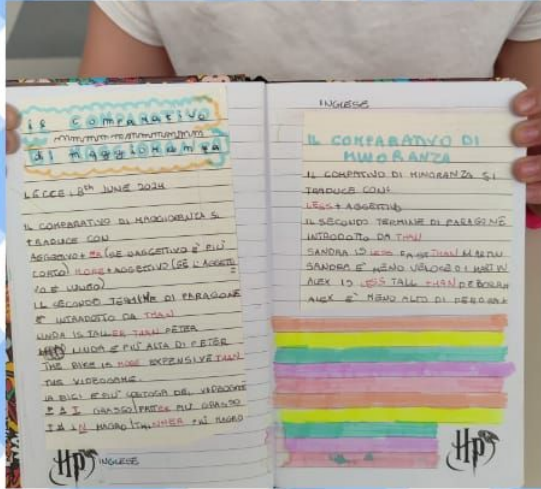 il comparativo
di maggioranza
LECCE, 8th JUNE 2024
IL COMPARATIVO DI MAGGIORANZA SI
TRADUCE CON
AGGETTIVO + ER (SE L'AGGETTIVO E' PIÙ
CORTO) MORE + AGGETTIVO (SE L'AGGETTI
VO E' LUNGO)
IL SECONDO TERMINE DI PARAGONE
E' INTRODOTTO DA THAN
LINDA IS TALLER THAN PETER
LINDA E' PIÙ ALTA DI PETER
THE BIKE IS MORE EXPENSIVE THAN
THE VIDEOGAME.
LA BICI E' PIU' COSTOSA DEL VIDEOGAME
FAT GRASSO/FATTER PIU' GRASSO
THIN MAGRO/THINNER PIU' MAGRO
HP INGLESE
INGLESE
IL COMPARATIVO DI
MINORANZA
IL COMPATIVO DI MINORANZA SI
TRADUCE CON:
LESS + AGGETTIVO
IL SECONDO TERMINE DI PARAGONE
INTRODOTTO DA THAN
SANDRA IS LESS FAST THAN MARTIN
SANDRA E' MENO VELOCE DI MARTIN
ALEX IS LESS TALL THAN DEBORAH
ALEX E' MENO ALTO DI DEBORAH
HP